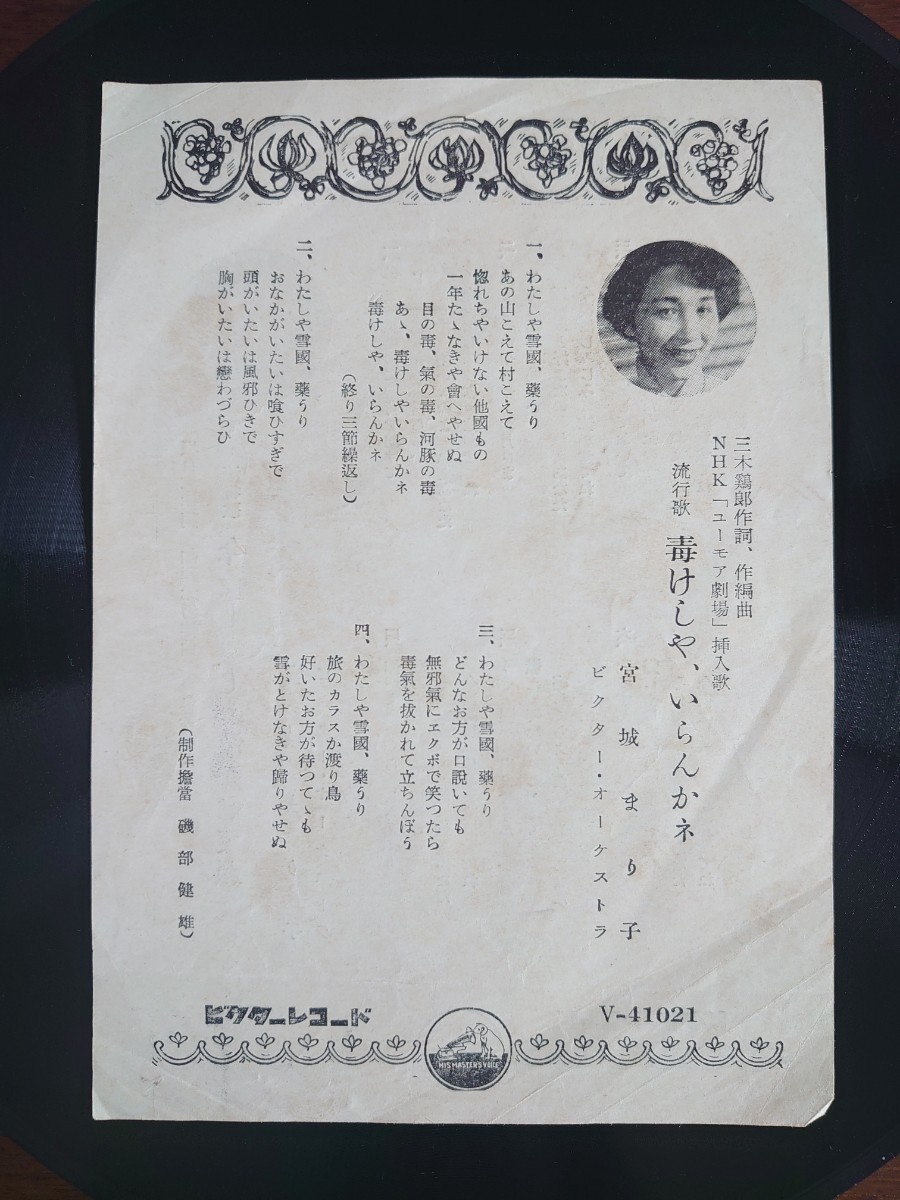 三木鶏郎作詞、作編曲
NHK「ユーモア劇場」挿入歌
流行歌 毒けしや、いらんかネ
宮城まり子
ビクター・オーケストラ
一、わたしや雪國、藥うり
あの山こえて村こえて
惚れちやいけない他國もの
一年たゝなきや會へやせぬ
目の毒、氣の毒、河豚の毒
あゝ、毒けしやいらんかネ
毒けしや、いらんかネ
（終り三節繰返し）
二、わたしや雪國、藥うり
おなかがいたいは喰ひすぎで
頭がいたいは風邪ひきで
胸がいたいは戀わづらひ
三、わたしや雪國、藥うり
どんなお方が口說いても
無邪氣にエクボで笑つたら
毒氣を拔かれて立ちんぼう
四、わたしや雪國、藥うり
旅のカラスか渡り鳥
好いたお方が待つてゝも
雪がとけなきや歸りやせぬ
（制作擔當 磯部健雄）
ビクターレコード
HIS MASTER'S VOICE
V-41021